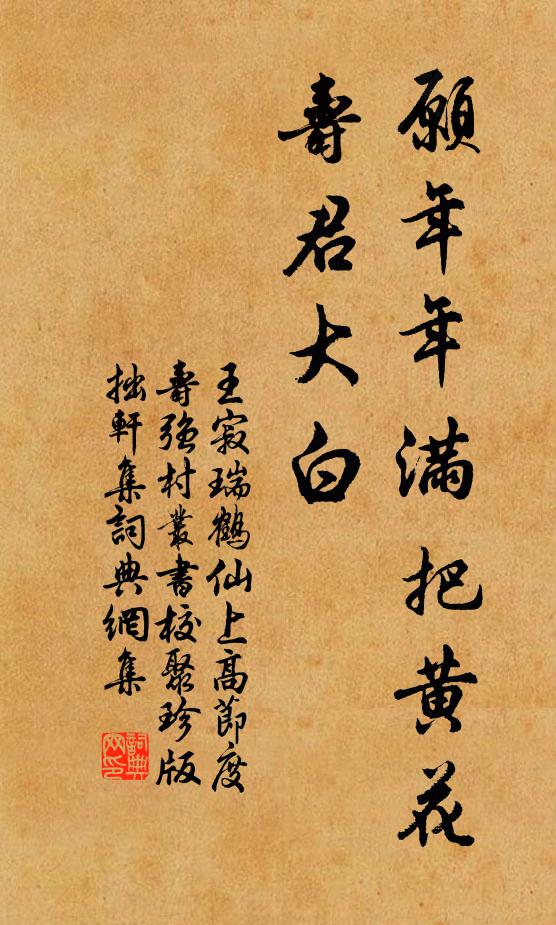 願年年滿把黄花
壽君大白
王寂瑞鶴仙上高節度
壽強村叢書校聚珍版
拙軒集詞典網集
詞典網印